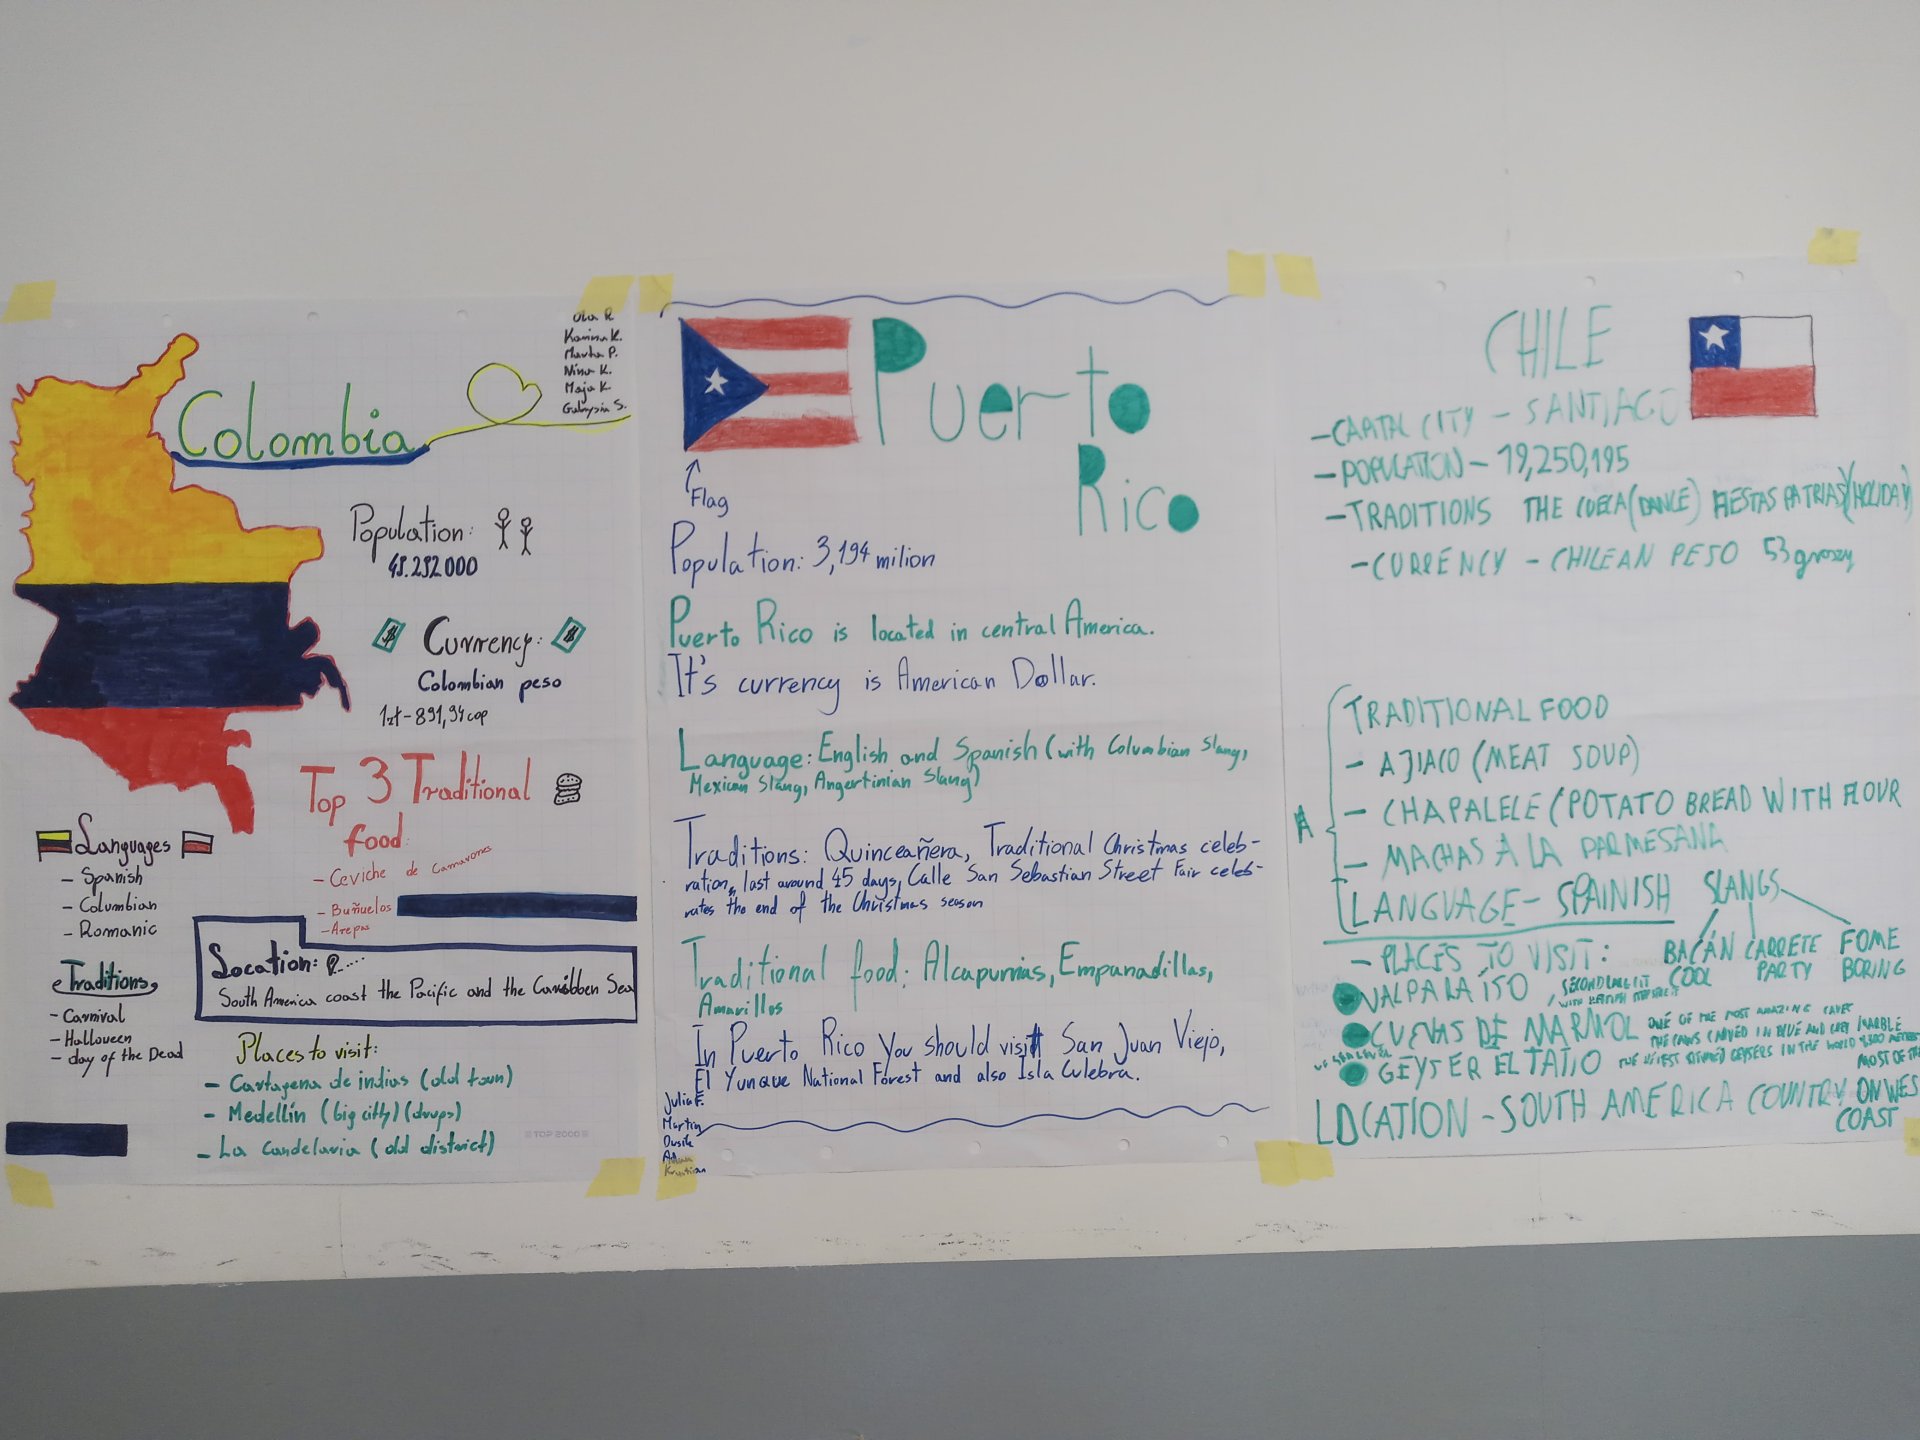 Colombia
Ola R.
Kamina K.
Marta P.
Nina K.
Maja K.
Gabrysia S.
Population:
Currency:
Colombian peso
1zł-891,94cop
Top 3 Traditional
food:
- Ceviche de Camarones
- Buñuelos
- Arepas
Languages
- Spanish
- Columbian
- Romanic
Traditions
- Carnival
- Halloween
- day of the Dead
Location:
South America coast the Pacific and the Sea
Places to visit:
- Cartagena de indias (old town)
- Medellín (big citty) (drugs)
- La Candelaria (old district)
TOP 2000
Puerto
Rico
Flag
Population: 3,194 milion
Puerto Rico is located in central America.
It's currency is American Dollar.
Language: English and Spanish (with Columbian Slang,
Mexican Slang, Angertinian Slang)
Traditions: Quinceañera, Traditional Christmas celeb-
ration, last around 45 days, Calle San Sebastian Street Fair celeb-
rates the end of the Christmas season
Traditional food: Alcapurrias, Empanadillas,
Amarillos
In Puerto Rico you should visit San Juan Viejo,
El Yunque National Forest and also Isla Culebra.
Julia F.
Martin
CHILE
- CAPITAL CITY - SANTIAGO
- POPULATION - 19,250,195
- TRADITIONS THE CUECA (DANCE) FIESTAS PATRIAS (HOLIDAY)
- CURRENCY - CHILEAN PESO 53 groszy
TRADITIONAL FOOD
- AJIACO (MEAT SOUP)
- CHAPALELE (POTATO BREAD WITH FLOUR
- MACHAS A LA PARMESANA
LANGUAGE - SPAINISH SLANGS
BACÁN CARRETE FOME
COOL PARTY BORING
- PLACES TO VISIT:
VALPARAÍSO
CUEVAS DE MARMOL ONE OF THE MOST AMAZING CAVES
GEYSER EL TATIO
LOCATION - SOUTH AMERICA COUNTRY ON WES
COAST